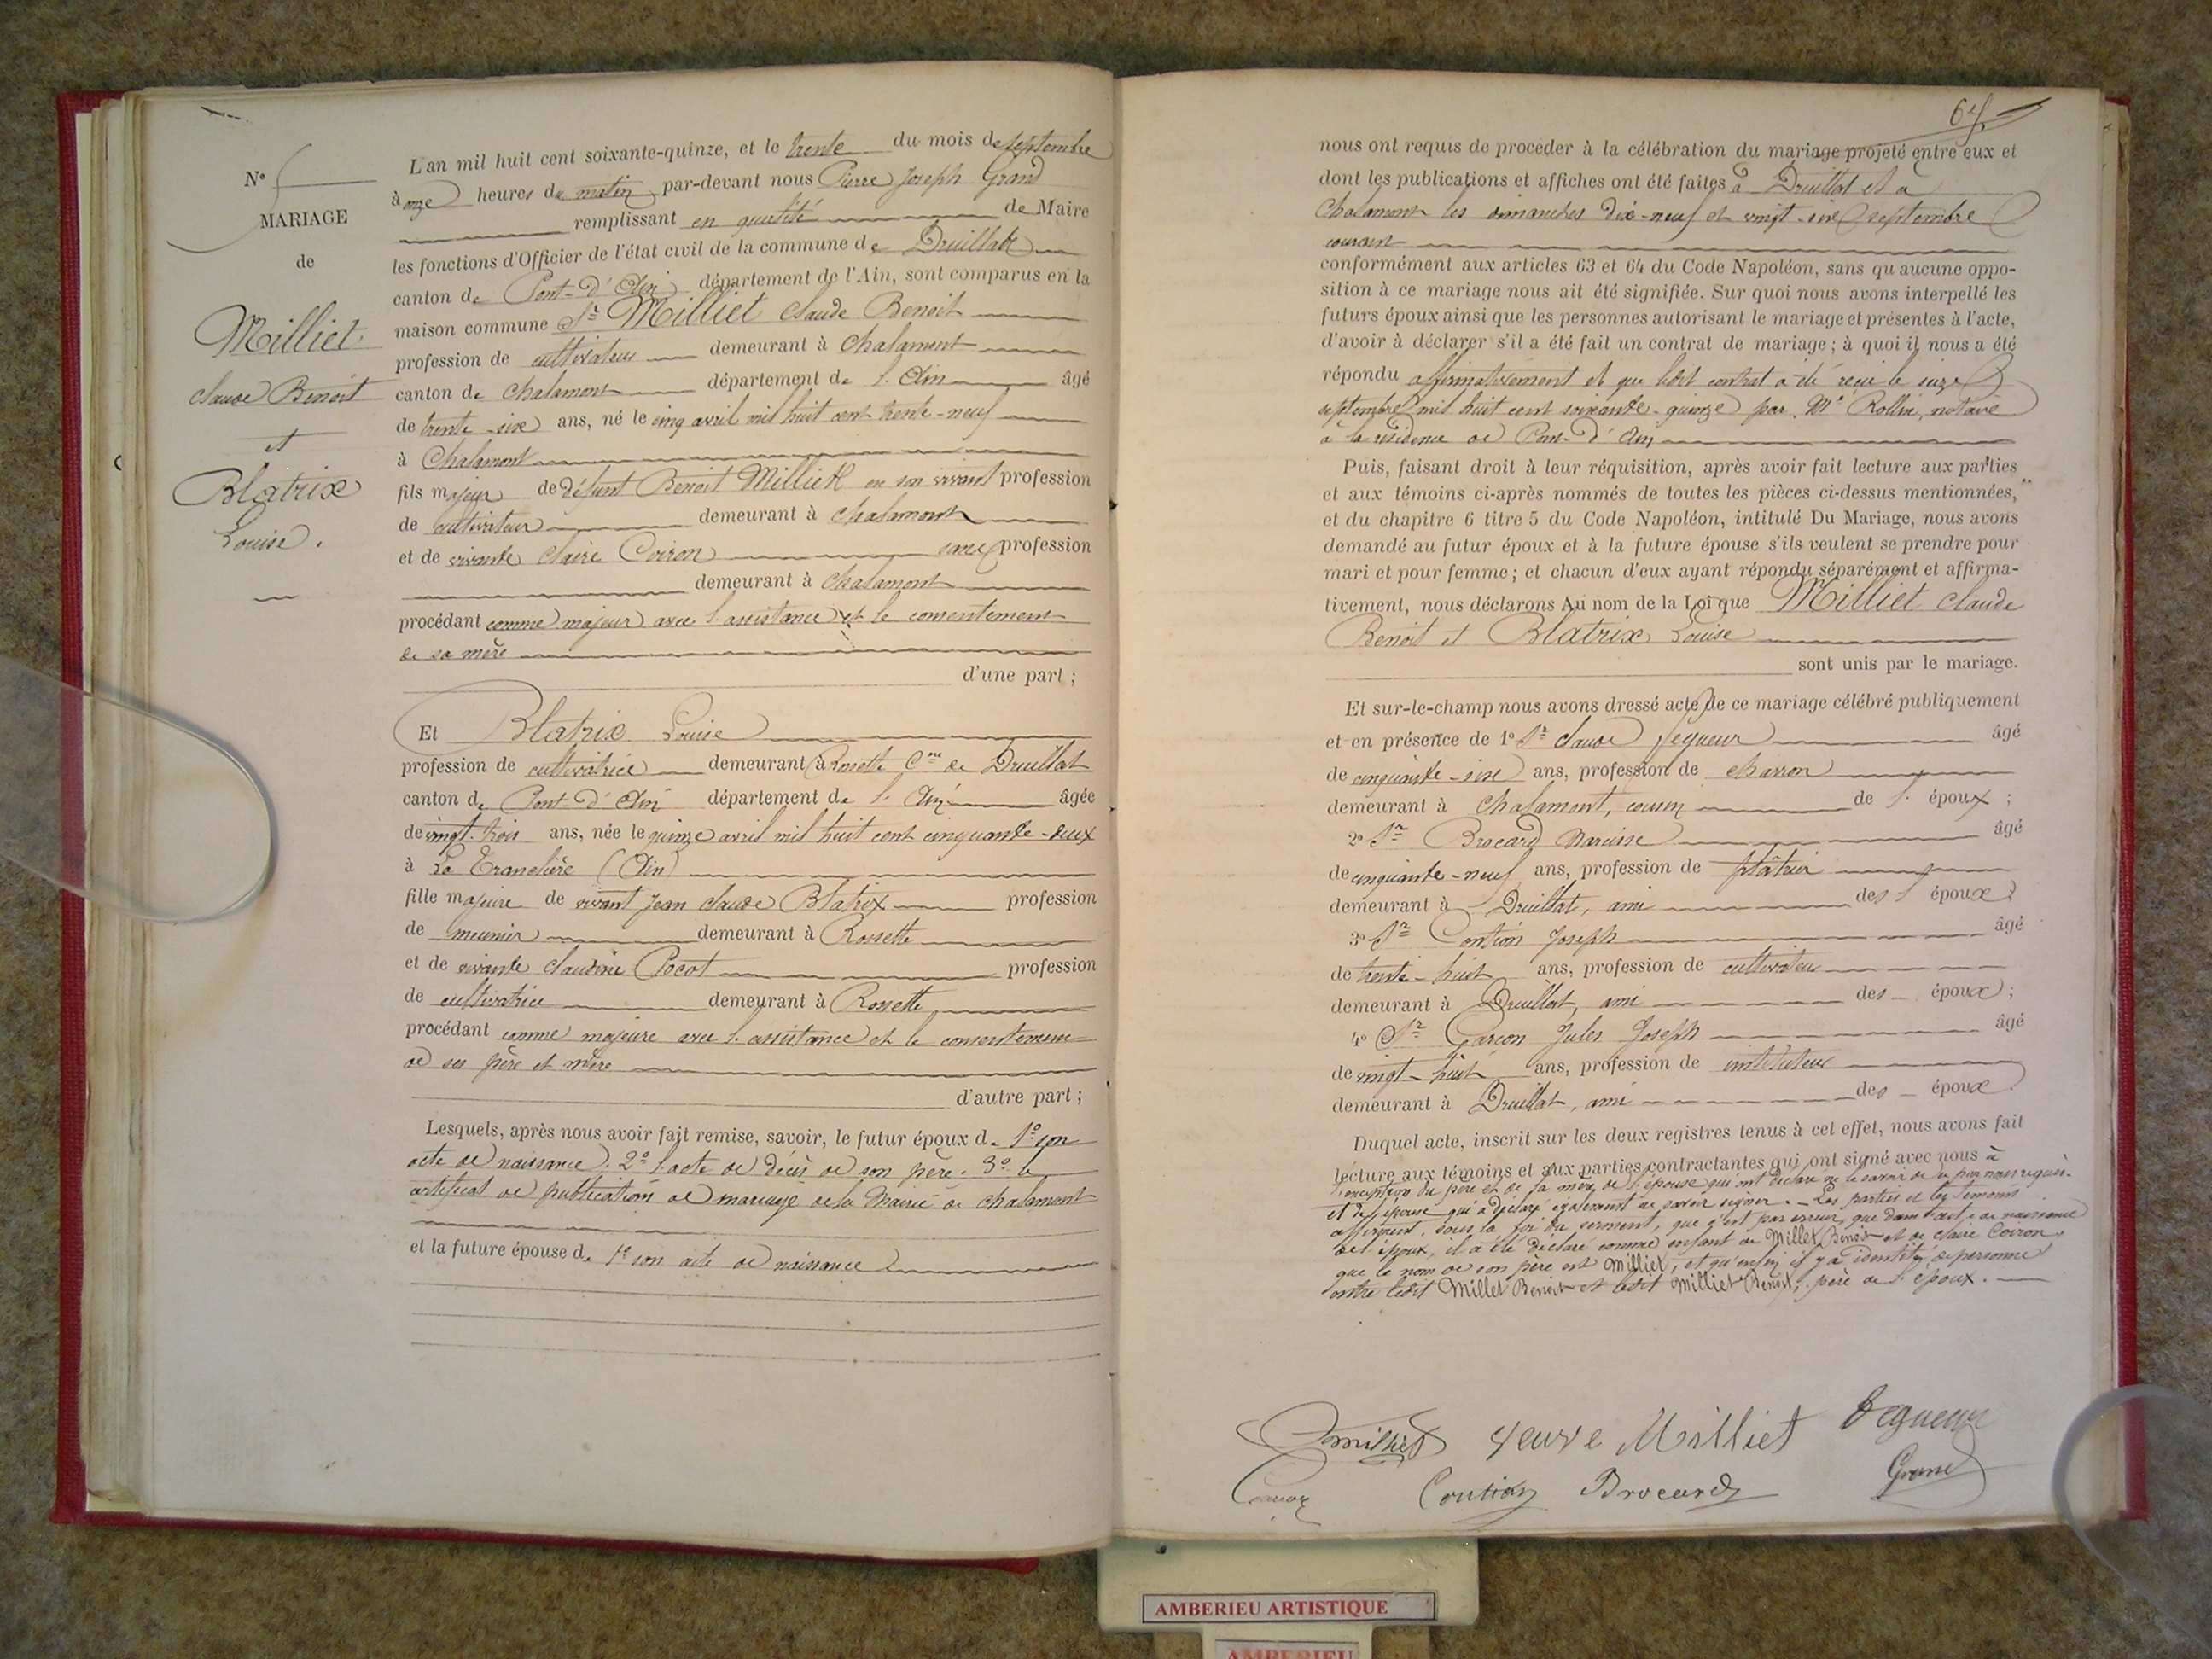 N°
MARIAGE
de
Milliet
Claude Benoit
et
Blatrix
Louise.
L'an mil huit cent soixante-quinze, et le trente du mois de septembre
à onze heures du matin par-devant nous Pierre Joseph Grand
remplissant en qualité de Maire
les fonctions d'Officier de l'état civil de la commune de Druillat
canton de Pont-d'Ain département de l'Ain, sont comparus en la
maison commune Sr Milliet Claude Benoit
profession de cultivateur demeurant à Chalamont
canton de Chalamont département de l'Ain âgé
de trente-six ans, né le cinq avril mil huit cent trente-neuf
à Chalamont
fils majeur de défunt Benoit Milliet en son vivant profession
de cultivateur demeurant à Chalamont
et de vivante Claire Coiron sans profession
demeurant à Chalamont
procédant comme majeur avec l'assistance et le consentement
de sa mère
d'une part;
Et Blatrix Louise
profession de cultivatrice demeurant à Rossette Cne de Druillat
canton de Pont-d'Ain département de l'Ain âgée
de vingt-trois ans, née le quinze avril mil huit cent cinquante-deux
à La Tranclière (Ain)
fille majeure de vivant Jean Claude Blatrix profession
de meunier demeurant à Rossette
et de vivante Claudine Pocot profession
de cultivatrice demeurant à Rossette
procédant comme majeure avec l'assistance et le consentement
de ses père et mère
d'autre part;
Lesquels, après nous avoir fait remise, savoir, le futur époux de 1° son
acte de naissance. 2° l'acte de décès de son père. 3° le
certificat de publication de mariage de la Mairie de Chalamont
et la future épouse de 1° son acte de naissance
nous ont requis de procéder à la célébration du mariage projeté entre eux et
dont les publications et affiches ont été faites à Druillat et à
Chalamont les dimanches dix-neuf et vingt-six septembre
courant
conformément aux articles 63 et 64 du Code Napoléon, sans qu'aucune oppo-
sition à ce mariage nous ait été signifiée. Sur quoi nous avons interpellé les
futurs époux ainsi que les personnes autorisant le mariage et présentes à l'acte,
d'avoir à déclarer s'il a été fait un contrat de mariage; à quoi il nous a été
répondu affirmativement et que ledit contrat a été reçu le seize
septembre mil huit cent soixante-quinze par Me Rollin, notaire
à la résidence de Pont-d'Ain
Puis, faisant droit à leur réquisition, après avoir fait lecture aux parties
et aux témoins ci-après nommés de toutes les pièces ci-dessus mentionnées,
et du chapitre 6 titre 5 du Code Napoléon, intitulé Du Mariage, nous avons
demandé au futur époux et à la future épouse s'ils veulent se prendre pour
mari et pour femme; et chacun d'eux ayant répondu séparément et affirma-
tivement, nous déclarons Au nom de la Loi que Milliet Claude
Benoit et Blatrix Louise
sont unis par le mariage.
Et sur-le-champ nous avons dressé acte de ce mariage célébré publiquement
et en présence de 1° Sr Claude âgé
de cinquante-six ans, profession de charron
demeurant à Chalamont, cousin de l'époux;
2° Sr Brocard Narcisse âgé
de cinquante-neuf ans, profession de plâtrier
demeurant à Druillat, ami des époux
3° Sr Contion Joseph âgé
de trente-huit ans, profession de cultivateur
demeurant à Druillat, ami des époux;
4° Sr Garcon Jules Joseph âgé
de vingt-huit ans, profession de instituteur
demeurant à Druillat, ami des époux
Duquel acte, inscrit sur les deux registres tenus à cet effet, nous avons fait
lecture aux témoins et aux parties contractantes qui ont signé avec nous à
l'exception du père et de la mère de l'épouse qui ont déclaré ne le savoir de ce par nous requis.
et de l'épouse qui a déclaré également ne savoir signer. - Les parties et les témoins
affirment, sous la foi du serment, que c'est par erreur que dans l'acte de naissance
de l'époux, il a été déclaré comme enfant de Millet Benoit et de Claire Coiron,
que le nom de son père est Milliet, et qu'enfin il y a identité de personne
entre ledit Millet Benoit et ledit Milliet Benoit, père de l'époux.
Milliet veuve Milliet
Contion Brocard Grand
AMBERIEU ARTISTIQUE
AMBERIEU